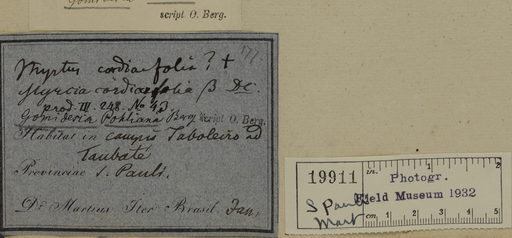 Gomideria
script O. Berg.
Myrtus cordiaefolia? +
Myrcia cordiaefolia β DC.
prod. III. 248. No 43
Gomidezia Pohliana Berg script O. Berg.
Habitat in campis Taboleiro ad
Taubaté
Provinciae S. Pauli.
Dr Martius Iter Brasil. Jan.
19911
in.
1
2
Photogr.
Field Museum 1932
S Paulo
Mart
cm
1
2
3
4
5